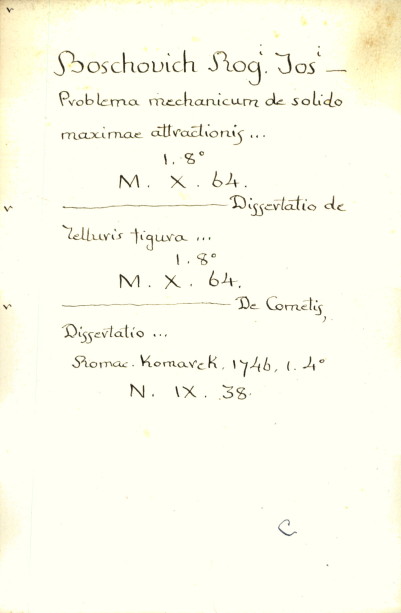 Boschovich Rog.i Josi —
Problema mechanicum de solido
maximae attractionis ...
1. 8°
M. X. 64.
——— Dissertatio de
Telluris figura ...
1. 8°
M. X. 64.
——— De Cometis,
Dissertatio ...
Romae. Komarek. 1746, 1. 4°
N. IX. 38.
C